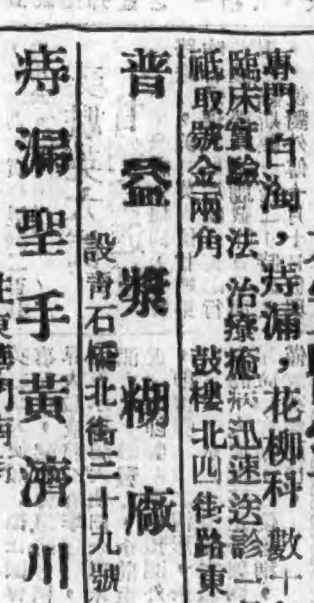 專門白濁，痔漏，花柳科數十
臨床實驗 法 治療瘡 迅速送診一
祗取號金兩角 鼓樓北四街路東
普益漿糊廠
設靑石橋北街三十九號
痔漏聖手黃濟川